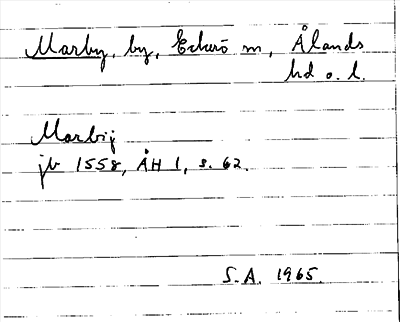 Marby, by, Eckerö sn, Ålands
hd o. l.
Marbij
jb 1558, ÅH 1, s. 62.
S.A. 1965.